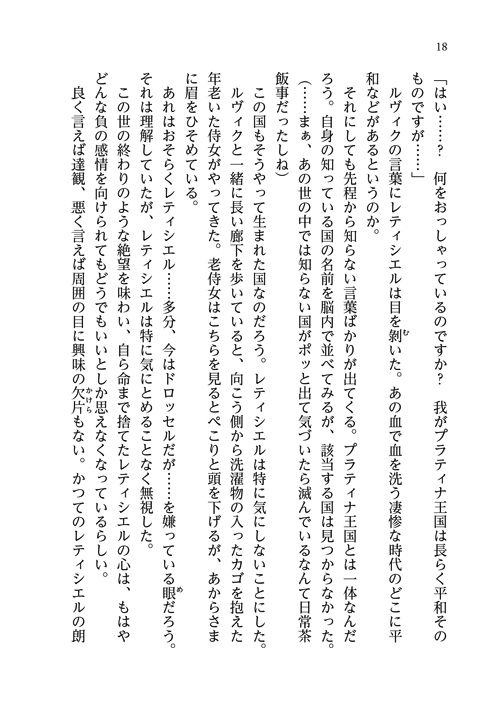 18
「はい……？　何をおっしゃっているのですか？　我がプラティナ王国は長らく平和その
ものですが……」
　ルヴィクの言葉にレティシエルは目を剝いた。あの血で血を洗う凄惨な時代のどこに平
和などがあるというのか。
　それにしても先程から知らない言葉ばかりが出てくる。プラティナ王国とは一体なんだ
ろう。自身の知っている国の名前を脳内で並べてみるが、該当する国は見つからなかった。
（……まぁ、あの世の中では知らない国がポッと出て気づいたら滅んでいるなんて日常茶
飯事だったしね）
　この国もそうやって生まれた国なのだろう。レティシエルは特に気にしないことにした。
　ルヴィクと一緒に長い廊下を歩いていると、向こう側から洗濯物の入ったカゴを抱えた
年老いた侍女がやってきた。老侍女はこちらを見るとぺこりと頭を下げるが、あからさま
に眉をひそめている。
　あれはおそらくレティシエル……多分、今はドロッセルだが……を嫌っている眼だろう。
それは理解していたが、レティシエルは特に気にとめることなく無視した。
　この世の終わりのような絶望を味わい、自ら命まで捨てたレティシエルの心は、もはや
どんな負の感情を向けられてもどうでもいいとしか思えなくなっているらしい。
　良く言えば達観、悪く言えば周囲の目に興味の欠片もない。かつてのレティシエルの朗